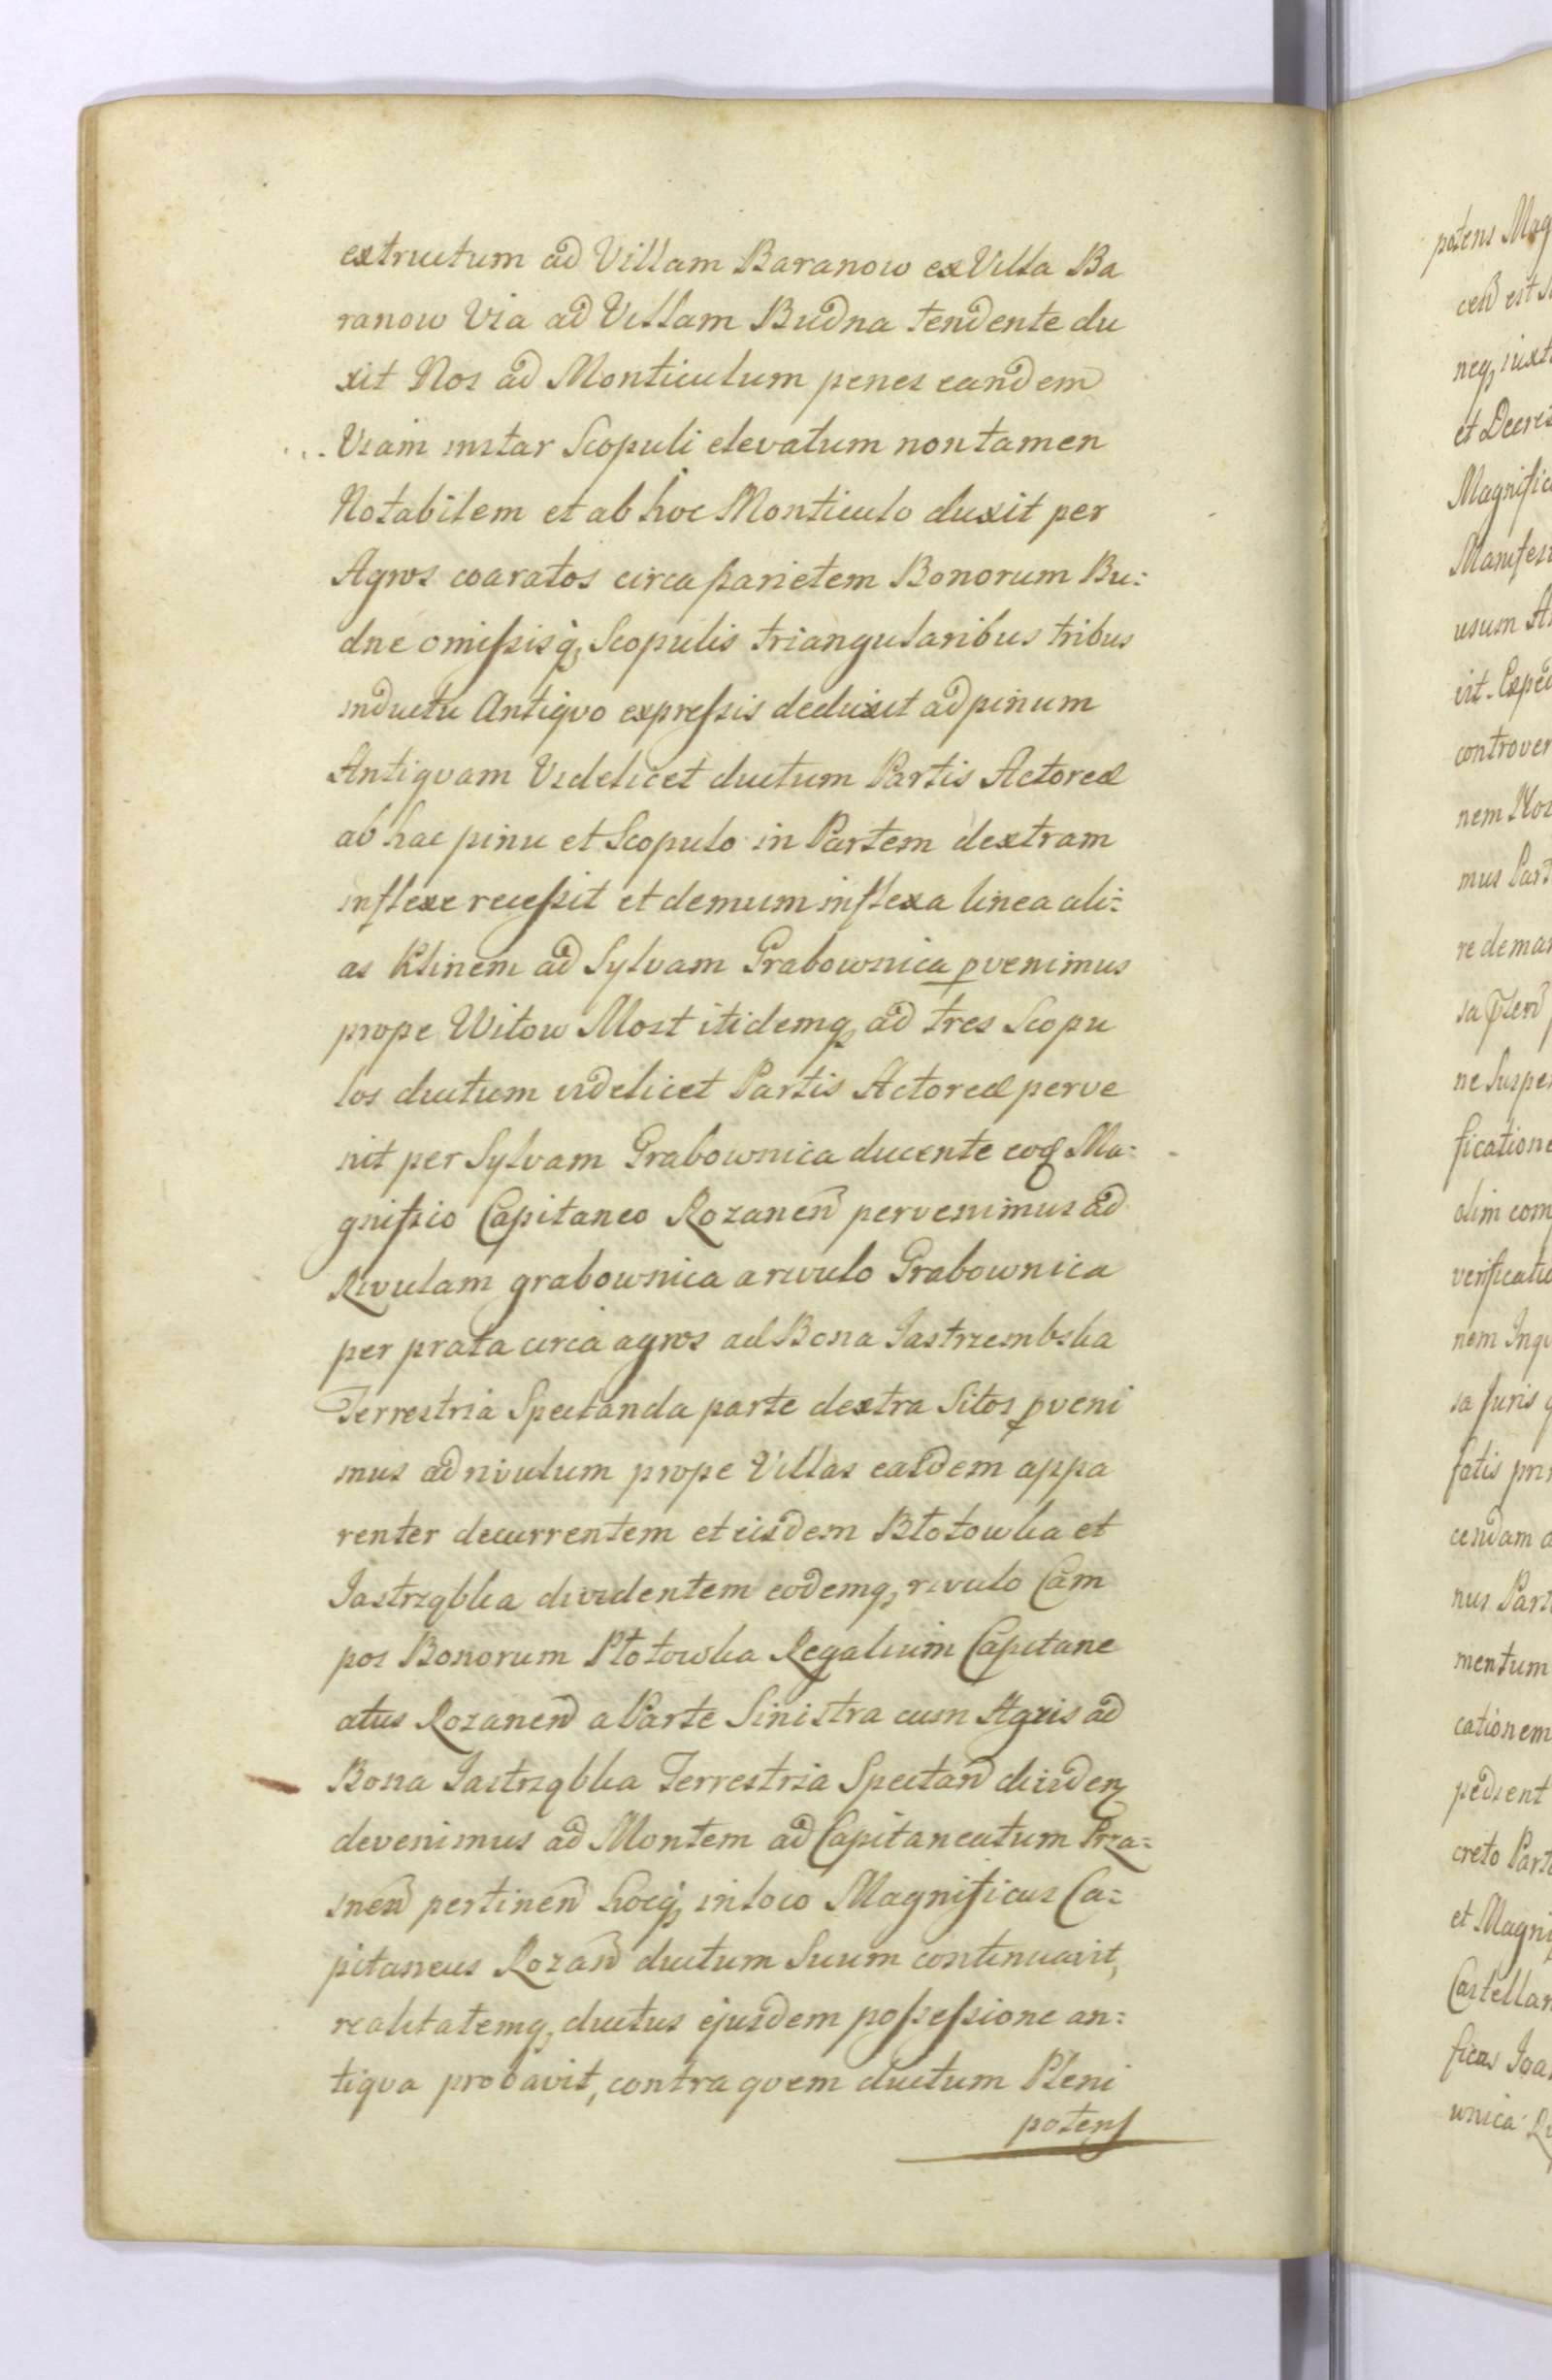 extructum ad Villam Baranow ex Villa Ba
ranow Via ad Villam Budna tendente du
xit Nos ad Monticulum penes eandem
Viam instar Scopuli elevatum non tamen
Notabilem et ab hoc Monticulo duxit per
Agros coaratos circa parietem Bonorum Bu:
dne omissisq, Scopulis triangularibus tribus
in ductu Antiqvo expressis deduxit ad pinum
Antiqvam Videlicet ductum Partis Actoreæ
ab hac pinu et Scopulo in Partem dextram
inflexe recessit et demum inflexa linea ali:
as Klinem ad Sylvam Grabownica pvenimus
prope Witow Most itidemq, ad tres Scopu
los ductum videlicet Partis Actoreæ perve
nit per Sylvam Grabownica ducente eod Ma:
gnifico Capitaneo Rozanen pervenimus ad
Rivulam grabownica a rivulo Grabownica
per prata circa agros ad Bona Jastrzembska
Terrestria Spectanda parte dextra Sitos pveni
mus ad rivulum prope Villas easdem appa
renter decurrentem et eisdem Błotowka et
Jastrząbka dividentem eodemq, rivulo Cam
pos Bonorum Płotowka Regalium Capitane
atus Rozanen a Parte Sinistra cum Agris ad
Bona Jastrząbka Terrestria Spectan dividen
devenimus ad Montem ad Capitaneatum Prza:
snen pertinen hocq, in loco Magnificus Ca:
pitaneus Rozan ductum Suum continuavit,
realitatemq, ductus ejusdem possessione an:
tiqva probavit, contra qvem ductum Pleni
potens
potens Mag
cen est
neq, iuxt
et Decre
Magnific
Manifes
usum A
vit. Exped
controver
nem Noz
mus Part
re deman
ne Suspe
fication
olim com
verificatio
nem Inqu
sa Juris
fatis pri
cendam
nus Part
mentum
cationem
pedient
creto Part
et Magni
Castellan
ficus Joa
wnica